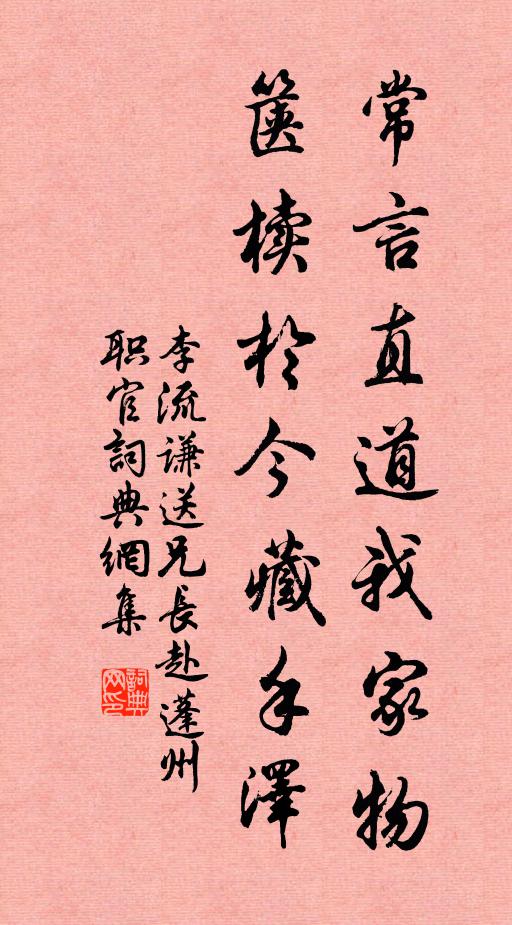 常言直道我家物
箧椟於今藏手澤
李流谦送兄長赴蓬州
职官詞典網集
詞典网印